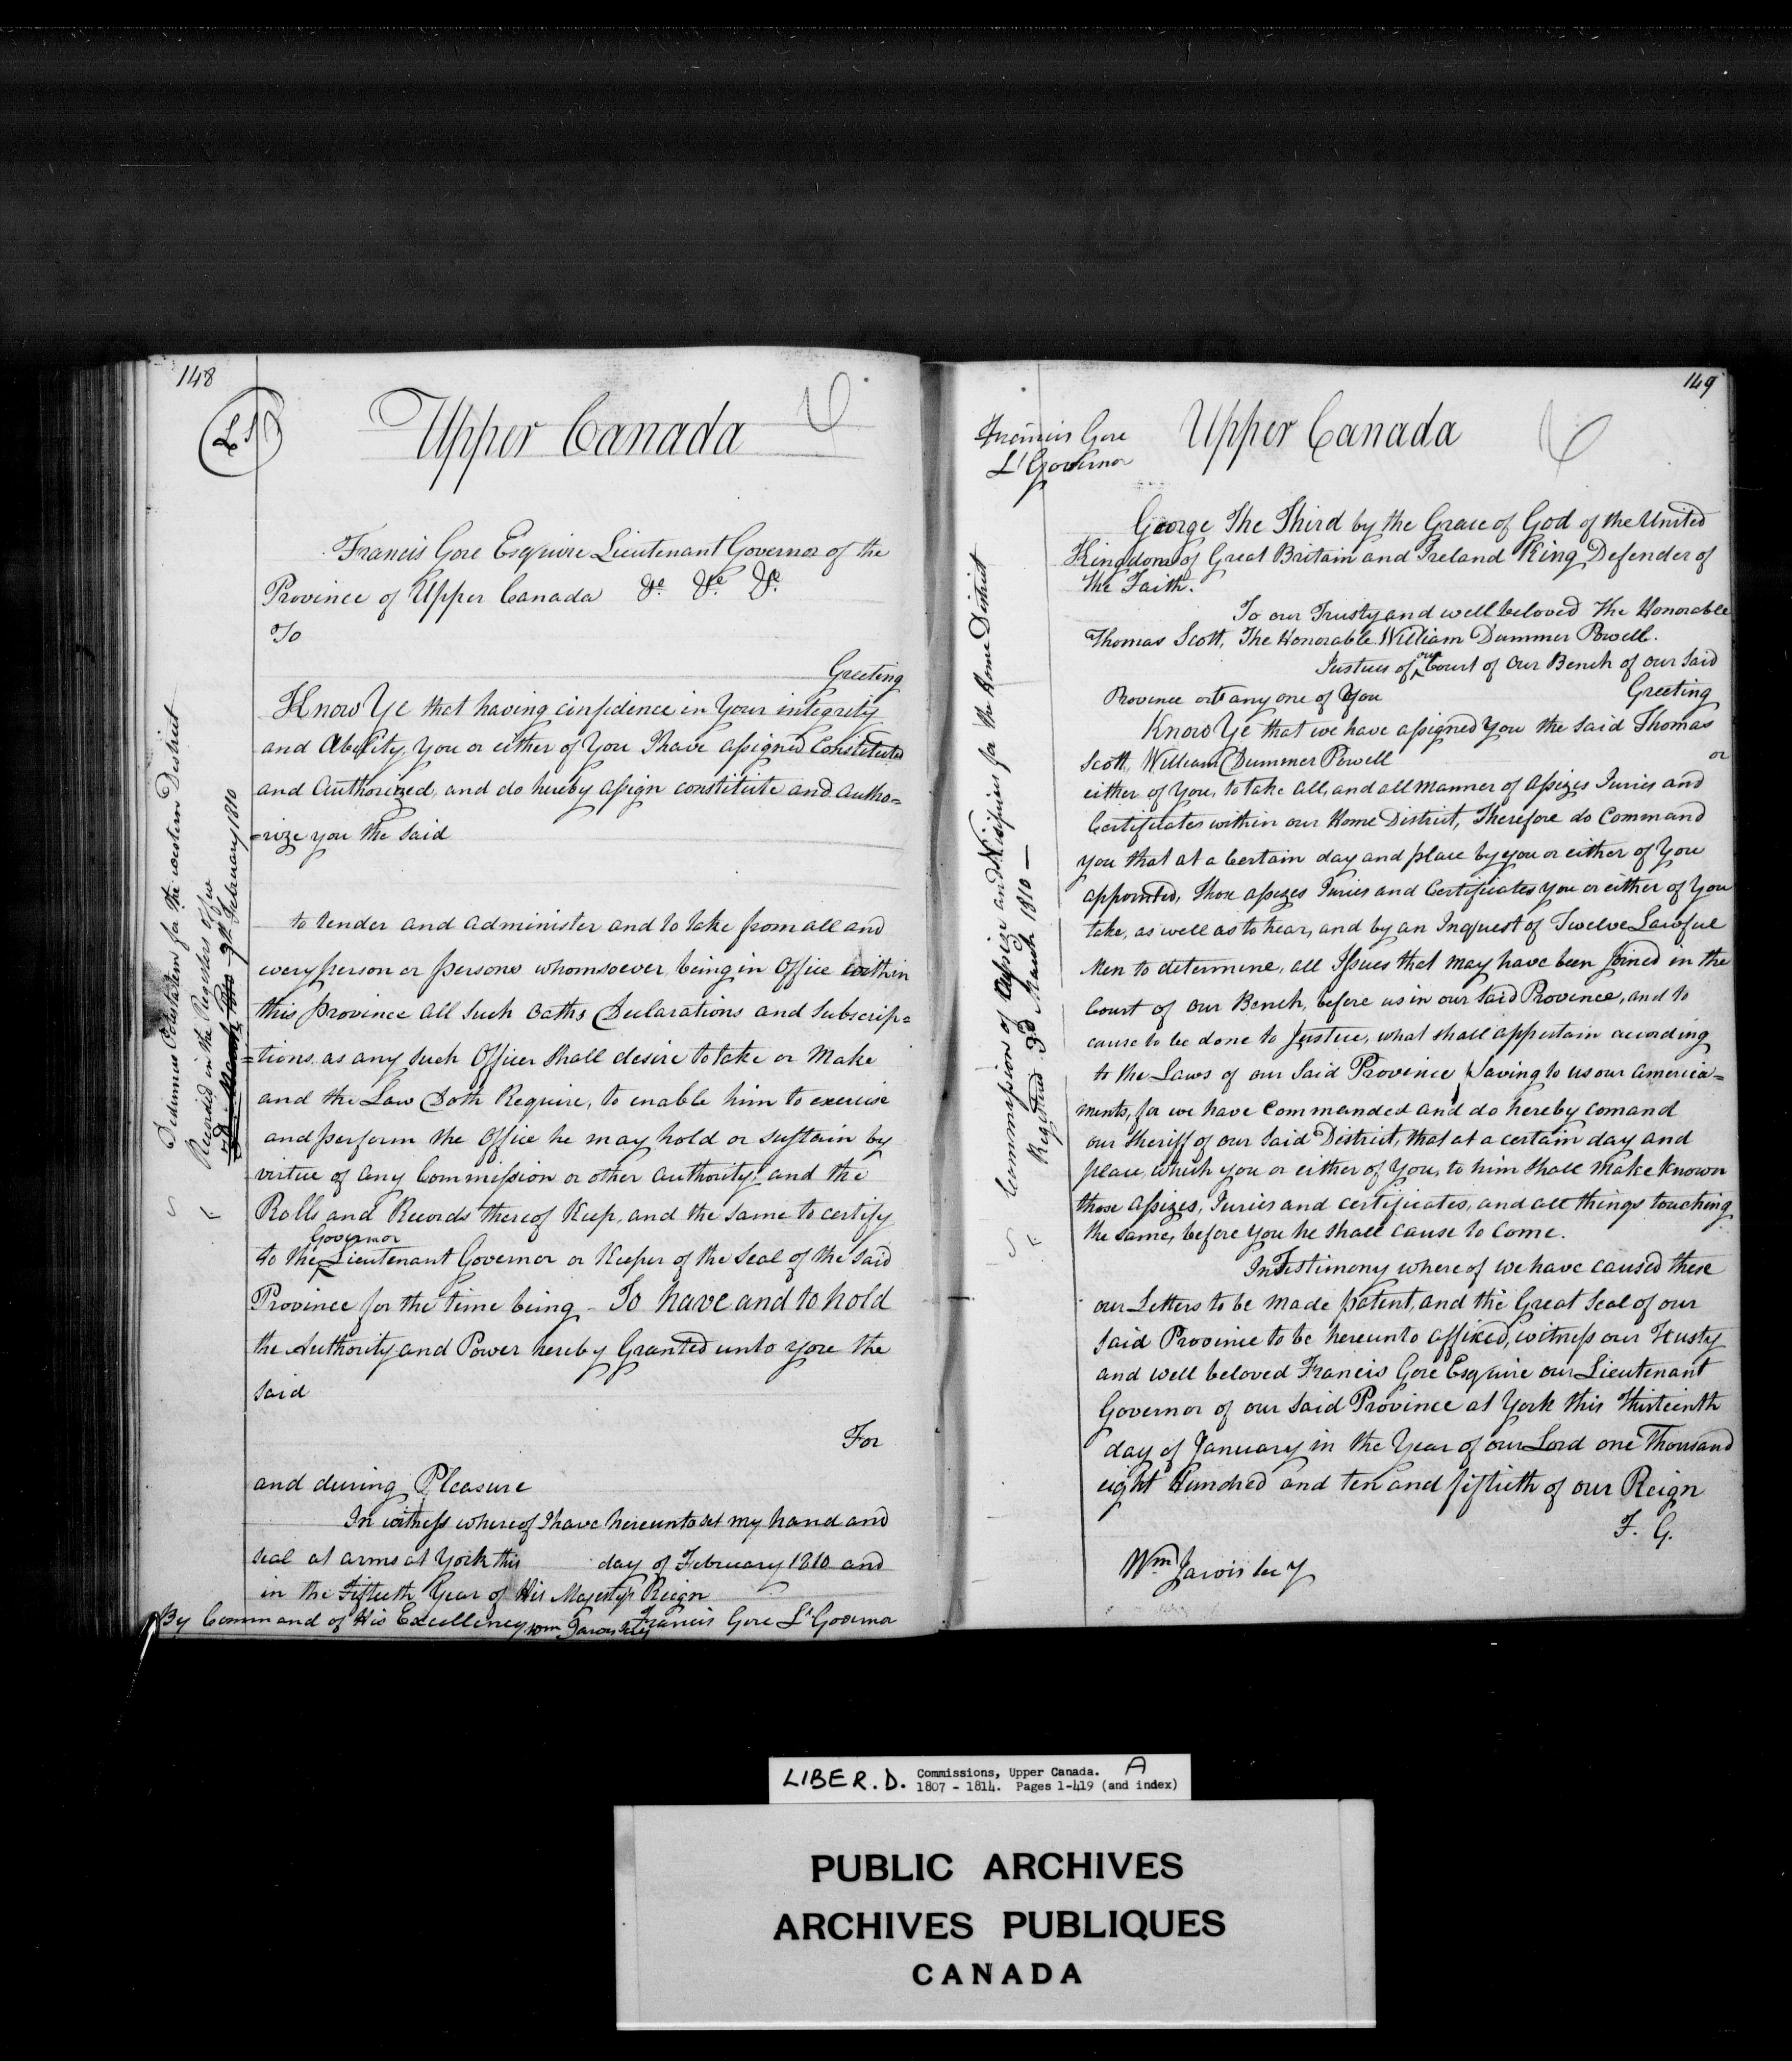 148
LS
Upper Canada
Francis Gore Esquire Lieutenant Governor of the
Province of Upper Canada &c. &c. &c.
To
Greeting
Know Ye that having confidence in Your integrity
and Ability, You or either of You I have assigned Constituted
and Authorized, and do hereby assign constitute and autho=
=rize you the said
to tender and administer and to take from all and
every person or persons whomsoever being in Office within
this province all such Oaths Declarations and Subscrip=
=tions as any such Officer shall desire to take or Make
and the Law Doth Require, to enable him to exercise
and perform the Office he may hold or sustain by
virtue of any Commission or other authority, and the
Rolls and Records thereof Keep, and the same to certify
Governor
to the Lieutenant Governor or Keeper of the Seal of the said
Province for the time being - To have and to hold
the Authority and Power hereby Granted unto you the
said
For
and during Pleasure
In witness whereof I have hereunto set my hand and
seal at arms at York this day of February 1810 and
in the Fiftieth Year of His Majestys Reign
By Command of His Excellency Wm Jarvis Secy Francis Gore Lt Governor
Dedimus Potestatem for the western District
Recorded in the Registers office
March 9th February 1810
149
Francis Gore
Lt Governor
Upper Canada
George The Third by the Grace of God of the United
Kingdom of Great Britain and Ireland King Defender of
the Faith.
To our Trusty and well beloved The Honorable
Thomas Scott, The Honorable William Dummer Powell.
Justices of our Court of Our Bench of our Said
Province or to any one of You Greeting
Know Ye that we have assigned You the said Thomas
Scott, William Dummer Powell or
either of You, to take all, and all manner of Assizes Juries and
Certificates within our Home District, Therefore do Command
you that at a Certain day and place by you or either of You
appointed, those assizes Juries and Certificates you or either of You
take, as well as to hear, and by an Inquest of Twelve Lawful
Men to determine, all Issues that may have been Joined in the
Court of our Bench, before us in our said Province, and to
cause to be done to Justice, what shall appertain according
to the Laws of our Said Province, Saving to us our America=
ments, for we have Commanded and do hereby comand
our Sheriff of our said District, that at a certain day and
place, which you or either of You, to him shall make known
those assizes, Juries and certificates, and all things touching
the same, before You he shall cause to Come.
In Testimony whereof we have caused these
our Letters to be made patent, and the Great Seal of our
said Province to be hereunto affixed, witness our Trusty
and well beloved Francis Gore Esquire our Lieutenant
Governor of our said Province at York this Thirteenth
day of January in the Year of our Lord one Thousand
eight Hundred and ten and fiftieth of our Reign
F. G.
Wm Jarvis Secy
Commission of Assize and Nisi prius for the Home District
Registered 3d March 1810 —
LIBER. D. Commissions, Upper Canada. A
1807 - 1814. Pages 1-419 (and index)
PUBLIC ARCHIVES
ARCHIVES PUBLIQUES
CANADA